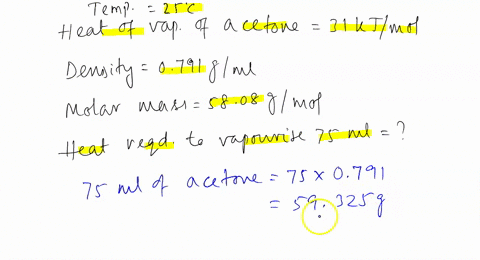 Temp. = 25°C
Heat of vap. of acetone = 31 kJ/mol
Density = 0.791 g/ml
Molar mass = 58.08 g/mol
Heat reqd. to vapourise 75 ml = ?
75 ml of acetone = 75 x 0.791
= 59.325g